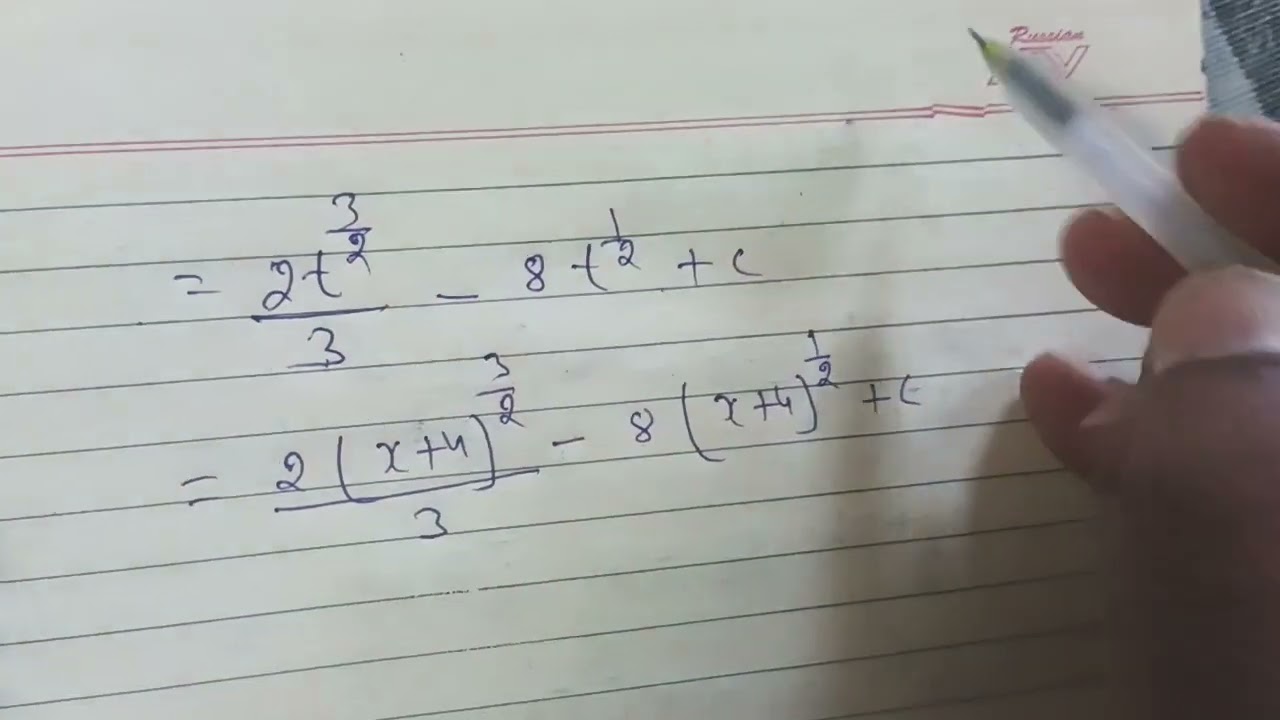 Russian
= 2t^(3/2) / 3 - 8 t^(1/2) + c
= 2 (x+4)^(3/2) / 3 - 8 (x+4)^(1/2) + c